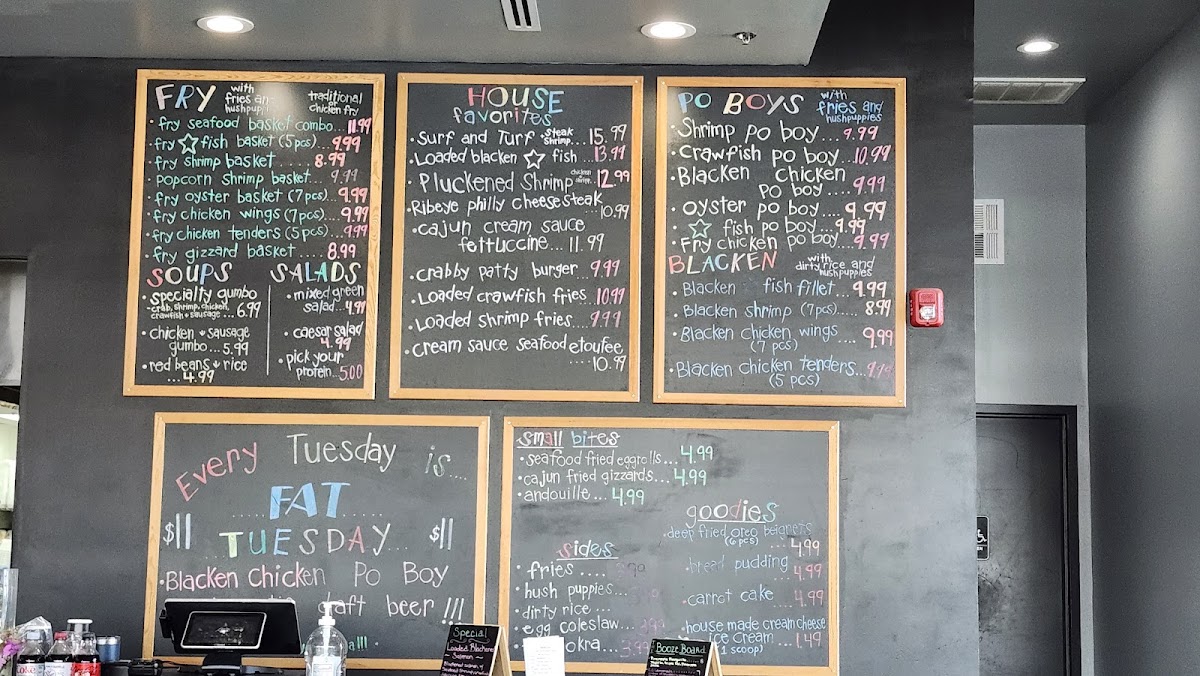 FRY with fries an
hushpuppi
traditional
or
chicken fry
• fry seafood basket combo... 11.99
• fry ☆ fish basket (5pcs)... 9.99
• fry shrimp basket ..... 8.99
• popcorn shrimp basket... 9.99
• fry oyster basket (7pcs). 9.99
• fry chicken wings (7pcs)... 9.99
• fry chicken tenders (5pcs)... 9.99
• fry gizzard basket .... 8.99
SOUPS
• specialty gumbo
crab, shrimp, chicken,
crawfish + sausage ... 6.99
• chicken + sausage
gumbo... 5.99
• red beans + rice
... 4.99
SALADS
• mixed green
salad... 4.99
• caesar salad
4.99
• pick your
protein... 5.00
HOUSE
favorites
• Surf and Turf • steak
shrimp... 15.99
• Loaded blacken ☆ fish ... 13.99
• Pluckened Shrimp chicken
12.99
• Ribeye philly cheesesteak
... 10.99
• cajun cream sauce
fettuccine... 11.99
• crabby patty burger... 9.99
• Loaded crawfish fries. 10.99
• Loaded shrimp fries.... 9.99
• cream sauce seafood etoufee
.... 10.99
PO BOYS with
fries and
hushpuppies
• Shrimp po boy .... 9.99
• crawfish po boy... 10.99
• Blacken chicken
po boy .... 9.99
oyster po boy .... 9.99
• ☆ fish po boy.... 9.99
• Fry chicken po boy... 9.99
BLACKEN with
dirty rice and
hushpuppies
• Blacken fish fillet... 9.99
• Blacken shrimp (7pcs)..... 8.99
• Blacken chicken wings
(7 pcs) .... 9.99
• Blacken chicken tenders... 9.99
(5 pcs)
Every Tuesday is....
..... FAT .....
$11 TUESDAY... $11
• Blacken Chicken Po Boy
draft beer !!!
small bites
• seafood fried eggrolls... 4.99
• cajun fried gizzards... 4.99
• andouille... 4.99
sides
• fries .... 3.99
• hush puppies...
• dirty rice ...
• egg coleslaw...
okra... 3.99
goodies
• deep fried oreo beignets
(6 pcs) .... 4.99
• bread pudding
.... 4.99
• carrot cake
.... 4.99
• house made cream cheese
ice cream
(1 scoop) .... 1.49
Special
Loaded Blackene
Salmon
Booze Board